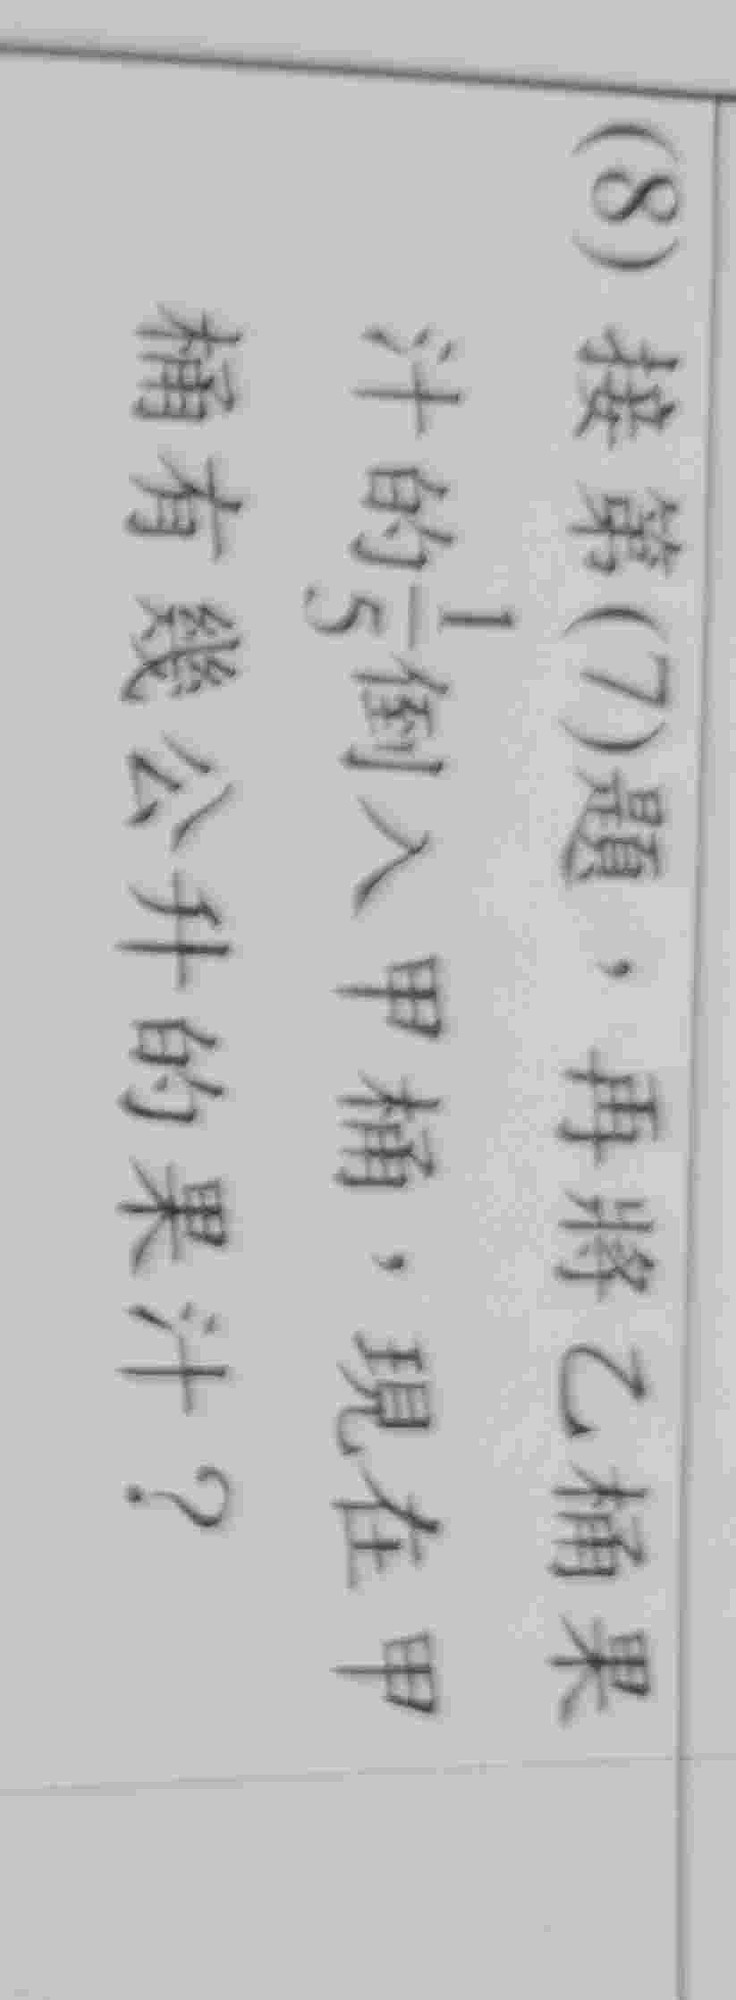 (8) 接第(7)題，再將乙桶果
汁的1/5倒入甲桶，現在甲
桶有幾公升的果汁？